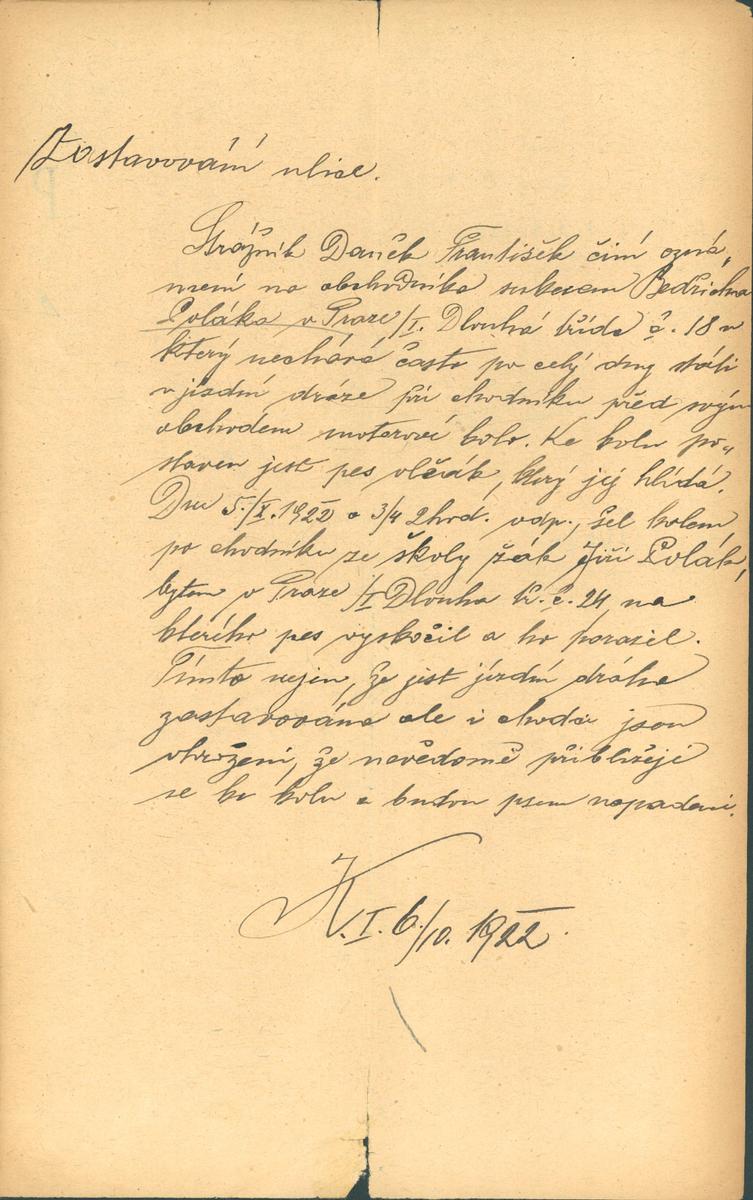 Zastavování ulice.
Strážník Daněk František činí ozná„
mení na obchodníka suknem Bedřicha
Poláka v Praze/I. Dlouhá třída č. 18 n
který nechává často po celý dny státi
v jízdní dráze při chodníku před svým
obchodem motorové kolo. Ke kolu po„
staven jest pes vlčák, který jej hlídá.
Dne 5./X. 1922 o 3/4 2 hod. odp., šel kolem
po chodníku ze školy žák Jiří Polák,
bytem v Praze/I Dlouha tř. č. 24, na
kterého pes vyskočil a ho porazil.
Tímto nejen, že jest jízdní dráha
zastavována ale i chodci jsou
ohrožení, že nevědomě přibližejí
se ku kolu a budou psem napadeni.
K. I. 6/10. 1922.